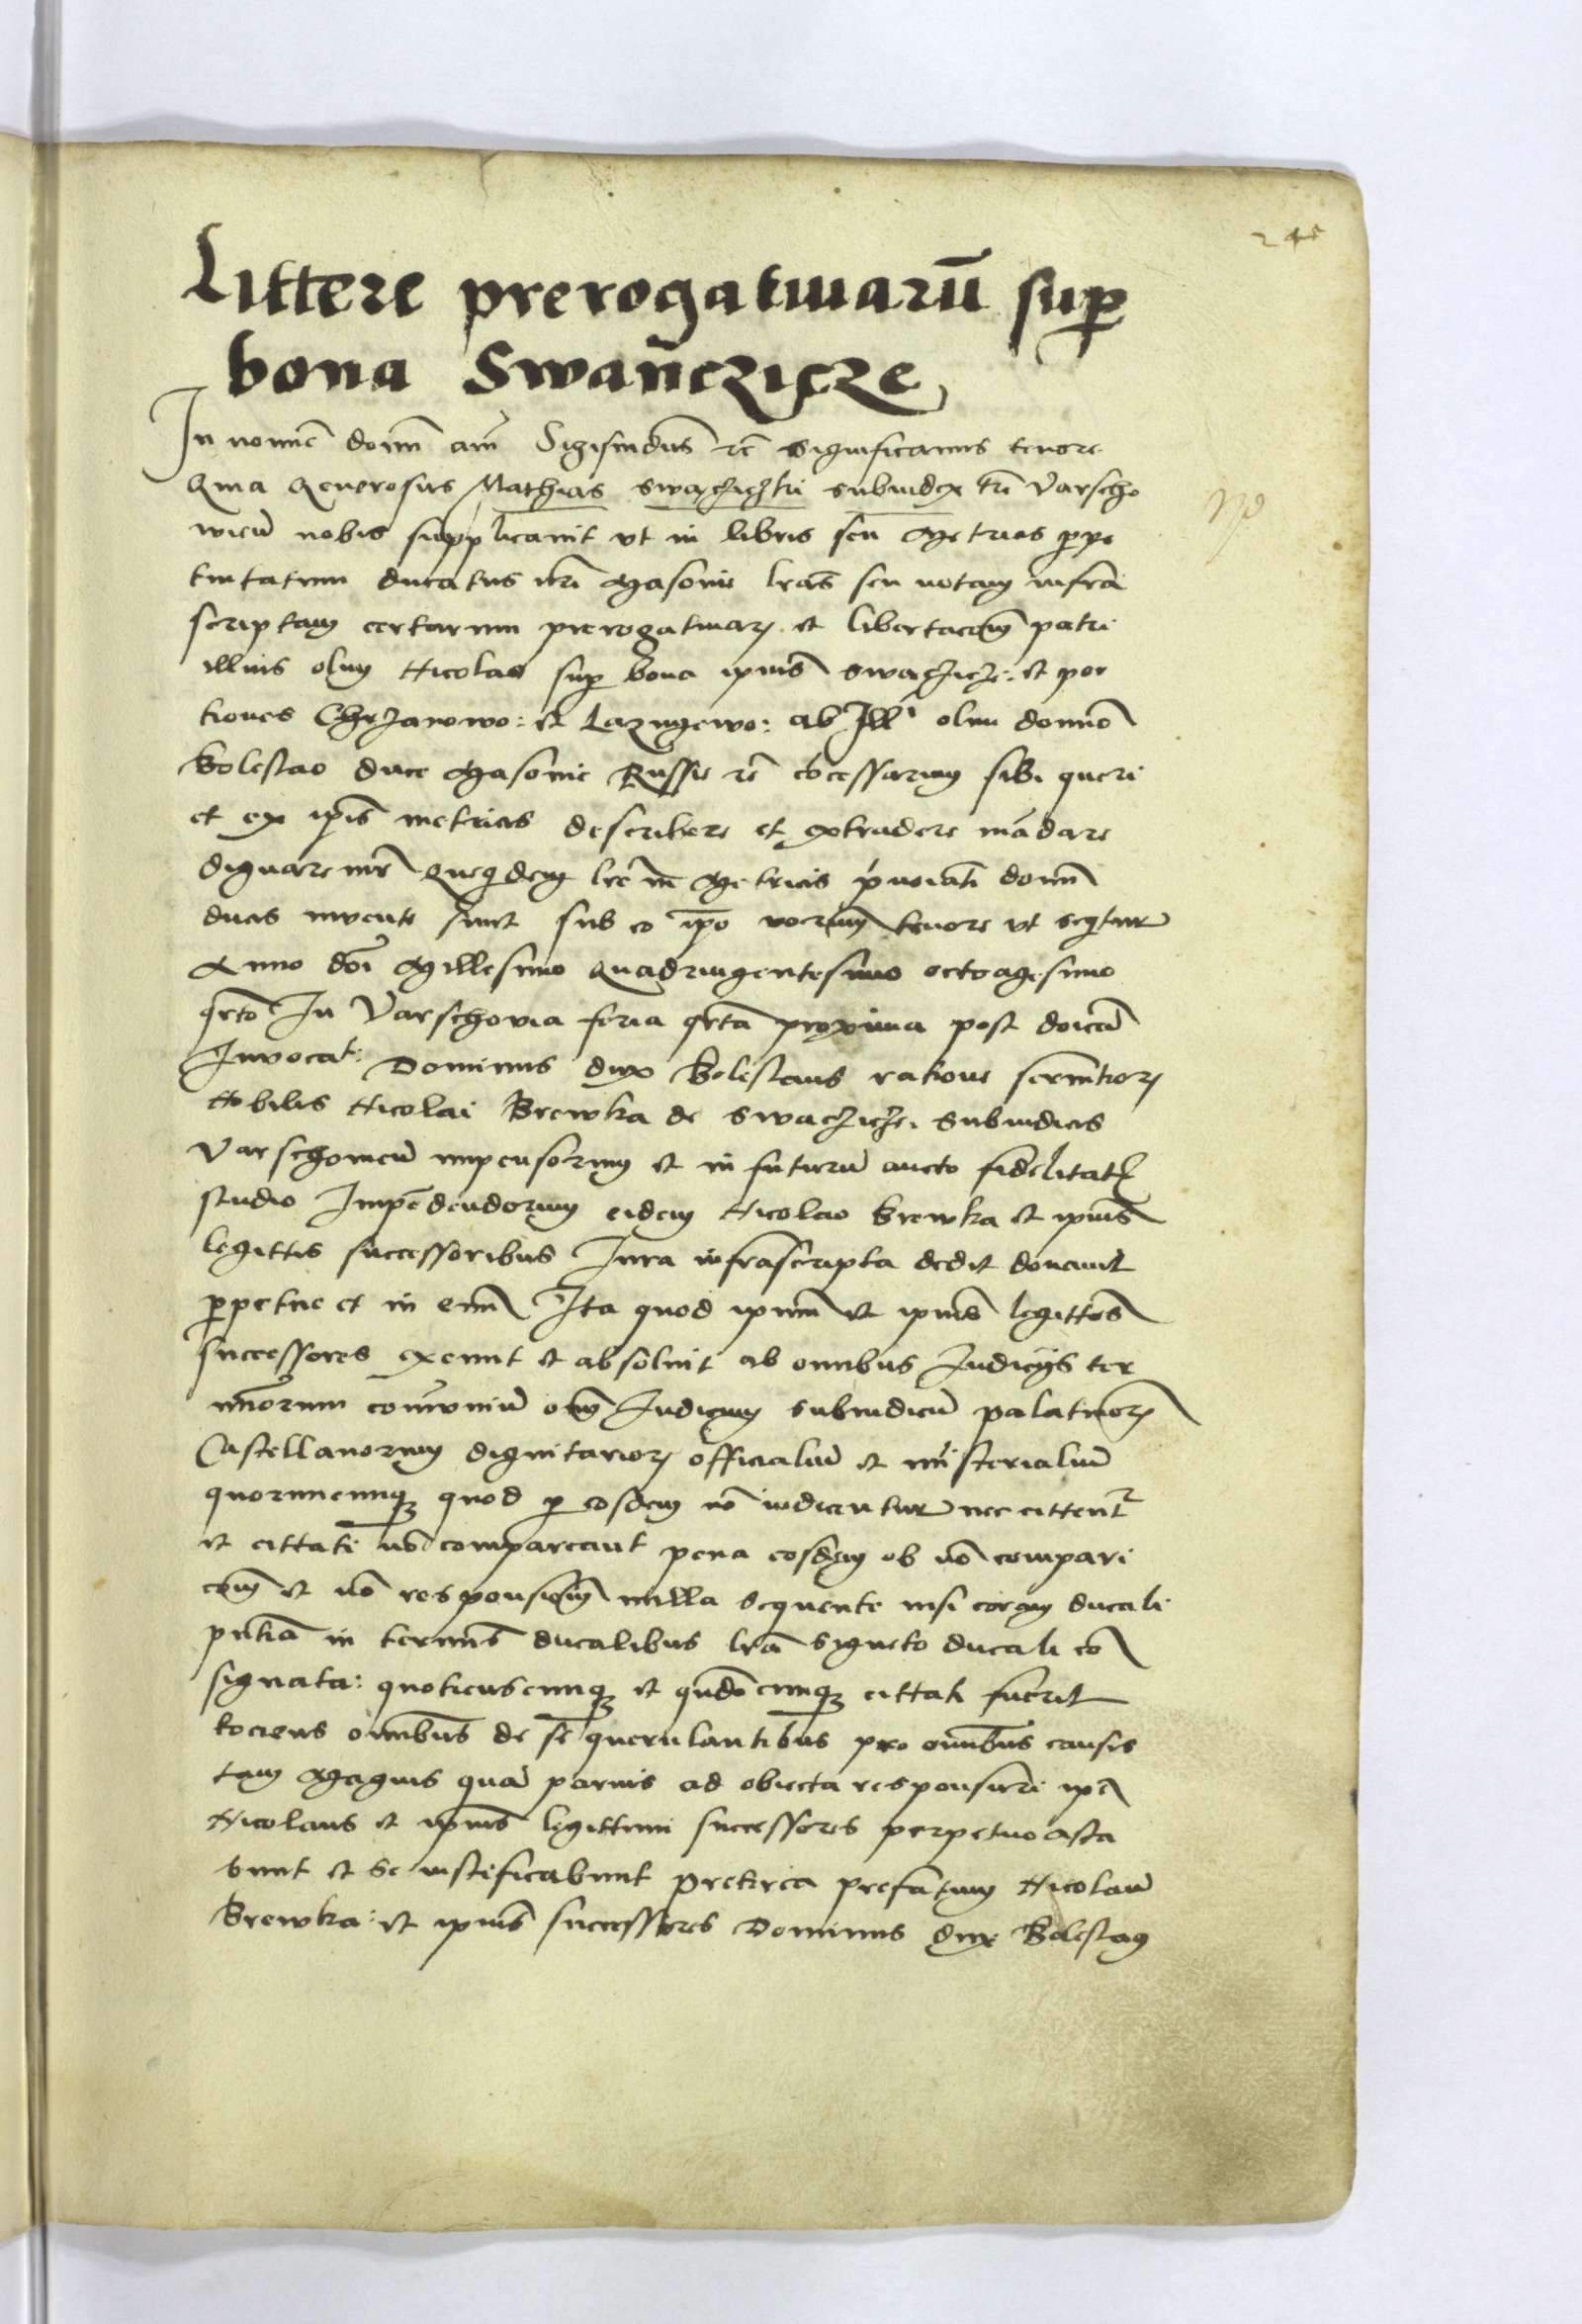 Littere prerogatiuarū sup
bona Swan̄czicze
In nomīe domī amē Sigismūdus rē significamus tenore
Quia Generosus Mathias Swazyczki subiudex tre Varscho
wieñ nobis supplicauit vt in libris seu Metrices ppe
tuitatum ducatus nrī Masouie lrās seu notam infra
scriptam certarum prerogatiuaꝝ et libertacōm patri
illius olim Nicolao sup bona ipius Swaczicze: et por
tiones Chrzanowo: et Lazngewo: ab Illi olim domino
Boleslao duce Masouie Russie rē cōcessarum sibi queri
et ex ipis metricis describere et extradere mādare
dignaremr Queqdem lrē in Metricis p̄noiati domī
ducis inuente sunt sub eo ipo verborum tenore vt seqtur
Anno doī Millesimo Quadringentesimo octoagesimo
qrto In Varschovia feria qrta proxima post doicā
Inuocat: Dominus dux Boleslaus ratione seruitioꝝ
Nobilis Nicolai Brewka de Swaczicze: Subiudicis
Varschouieñ impensorum et in futurū aucto fidelitatꝭ
studio Impēdendorum eidem Nicolao Brewka et ipius
legittis successoribus Iura infrascripta dedit donauit
ppetue et in euū Ita quod ipum et ipius legittos
successores exemit et absoluit ab omnibus Iudicijs ter
minorum comuniū oīm Iudicum subiudicū palatinoꝝ
Castellanorum dignitarioꝝ officialiū et ministerialiū
quorumcunqꝫ quod p eosdem nō iudicentur nec cittent
et cittati nō compareant pena eosdem ob nō compari
cōm et nō responsiōm nulla sequente nisi coram ducali
pntia in terminis ducalibus lrā signeto ducali cō
signata: quotienscunqꝫ et qn̄docunqꝫ cittati fuerit
tociens omnibus de se querulantibus pro omnibus causis
tam Magnis quā paruis ad obiecta responsuri ipe
Nicolaus et ipius legittimi successores perpetuo asta
bunt et se iustificabunt Preterea prefatum Nicolaū
Brewka: et ipius successores Dominus dux Boleslaꝰ